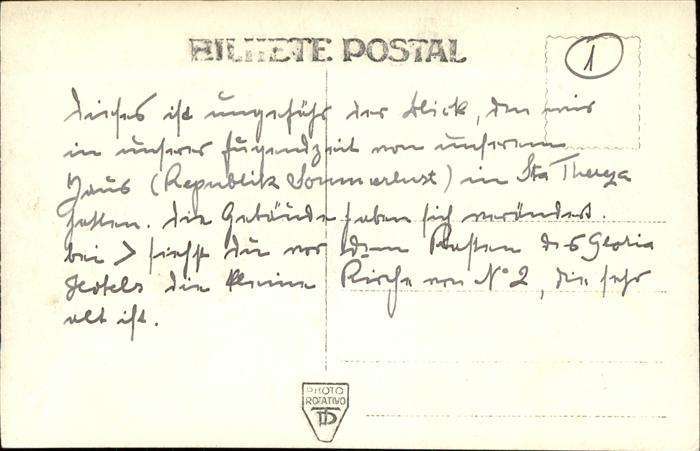 BILHETE POSTAL
1
Dieses ist ungefähr der Blick, den wir
in unserer Jugendzeit von unserem
Haus (Republik Sommerlust) in Sta Thereza
hatten. Die Gebäude haben sich verändert.
bei > siehst du vor dem Kasten des Gloria
Hotels die kleine Kirche von N° 2, die sehr
alt ist.
PHOTO
ROTATIVO